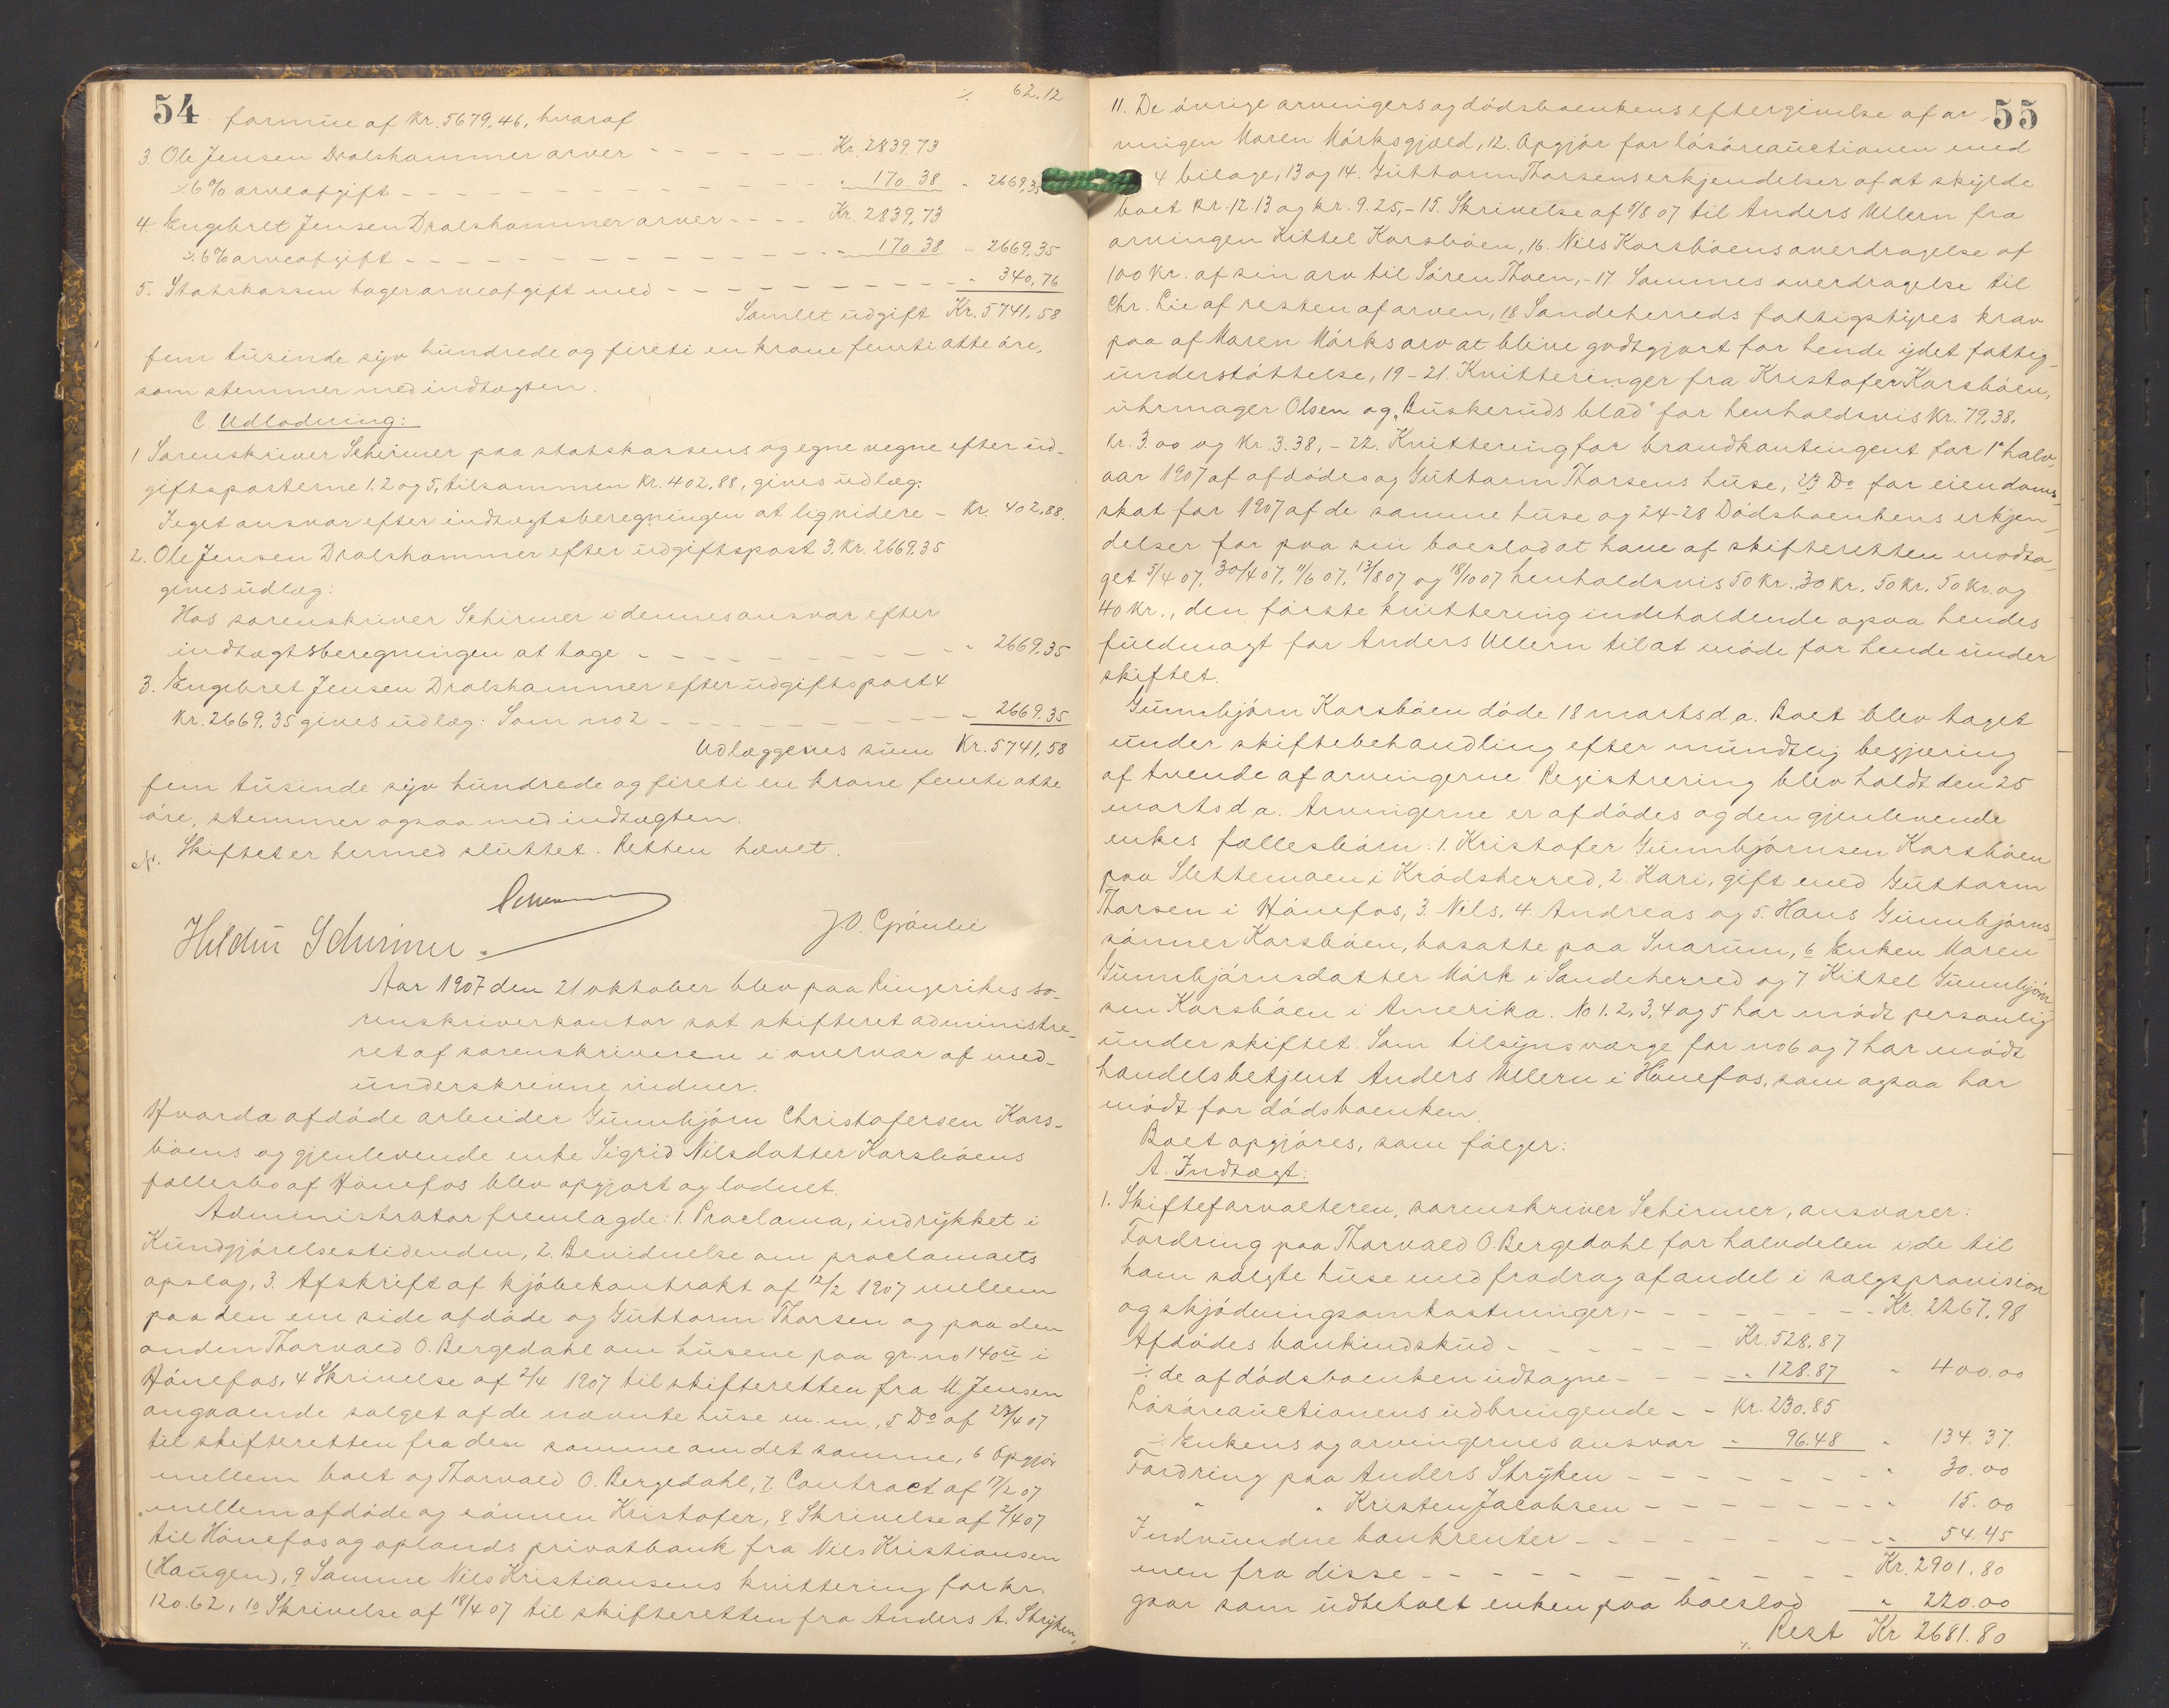 54
⁒ 62.12
formue af Kr. 5679,46, hvoraf
3. Ole Jensen Dralshammer arver - - - - - - Kr. 2839.73
⁒ 6% arveafgift - - - - - - - - " 170.38 " 2669,35
4. Engebret Jensen Dralshammer arver - - - - Kr. 2839,73
⁒ 6% arveafgift - - - - - - - - " 170.38 - 2669,35
5. Statskassen tager arveafgift med - - - - - - - - " 340,76
Samlet udgift Kr. 5741,58
fem tusinde syv hundrede og fireti en krone femti otte øre,
som stemmer med indtægten.
C. Udlodning:
1 Sorenskriver Schirmer paa statskassens og egne vegne efter ud-
giftsposterne 1. 2 og 5, tilsammen Kr. 402.88, gives udlæg:
I eget ansvar efter indtægtsberegningen at liqvidere - Kr. 402,88.
2. Ole Jensen Dralshammer efter udgiftspost 3. Kr. 2669.35
gives udlæg:
Hos sorenskriver Schirmer i dennes ansvar efter
indtægtsberegningen at tage - - - - - - - - " 2669.35
3. Engebret Jensen Dralshammer efter udgiftspost 4
Kr. 2669.35 gives udlæg: Som no 2 - - - - - - - - " 2669.35
Udlæggenes sum Kr. 5741,58
fem tusinde syv hundrede og fireti en krone femti otte
øre, stemmer ogsaa med indtægten.
Skiftet er hermed sluttet. Retten hævet.
Schirmer
Hildur Schirmer. J.O. Grønlie
Aar 1907 den 21 oktober blev paa Ringerikes so-
renskriverkontor sat skifteret administre-
ret af sorenskriveren i overvær af med-
underskrivne vidner.
Hvorda afdøde arbeider Gunnbjørn Christofersen Kors-
bøens og gjenlevende enke Sigrid Nilsdatter Korsbøens
fællesbo af Hønefos blev opgjort og lodnet.
Administrator fremlagde: 1. Proclama, indrykket i
Kundgjørelsestidenden, 2. Bevidnelse om proclamaets
opslag, 3. Afskrift af kjøbekontrakt af 12/2 1907 mellem
paa den ene side afdøde og Guttorm Thorsen og paa den
anden Thorvald O. Bergedahl om husene paa gr. no 140u i
Hønefos, 4 Skrivelse af 2/4 1907 til skifteretten fra M. Jensen
angaaende salget af de nævnte huse m. m., 5 Do af 23/4 07
til skifteretten fra den samme om det samme, 6 Opgjør
mellem boet og Thorvald O. Bergedahl, 7. Contract af 17/2 07
mellem afdøde og sønnen Kristofer, 8 Skrivelse af 2/4 07
til Hønefos og oplands privatbank fra Nils Kristiansen
(Haugen), 9 Samme Nils Kristiansens kvittering for kr.
120.62, 10 Skrivelse af 18/4 07 til skifteretten fra Anders A. Stryken,
55
11. De øvrige arvingers og dødsboenkens eftergivelse af ar-
vingen Maren Mørks gjæld, 12. Opgjør for løsøreauctionen med
4 bilage, 13 og 14. Guttorm Thorsens erkjendelser af at skylde
boet kr. 12.13 og kr. 9.25, - 15. Skrivelse af 5/8 07 til Anders Ullern fra
arvingen Kittel Korsbøen, 16. Nils Korsbøens overdragelse af
100 kr. af sin arv til Søren Thoen, - 17. Sammes overdragelse til
Chr. Lie af resten af arven, 18 Sandeherreds fattigstyres krav
paa af Maren Mørks arv at blive godtgjort for hende ydet fattig-
understøttelse, 19-21. Kvitteringer fra Kristofer Korsbøen,
uhrmager Olsen og „Buskeruds blad" for henholdsvis Kr. 79,38,
Kr. 3.00 og Kr. 3.38, - 22. Kvittering for brandkontingent for 1ste halv-
aar 1907 af afdødes og Guttorm Thorsens huse, 23 Do for eiendoms-
skat for 1907 af de samme huse og 24-28 Dødsboenkens erkjen-
delser for paa sin boeslod at have af skifteretten modta-
get 5/4 07, 30/4 07, 11/6 07, 13/8 07 og 18/10 07 henholdsvis 50 Kr. 30 Kr. 50 Kr. 50 Kr. og
40 Kr., den første kvittering indeholdende ogsaa hendes
fuldmagt for Anders Ullern til at møde for hende under
skiftet.
Gunnbjørn Korsbøen døde 18 marts d. a. Boet blev taget
under skiftebehandling efter mundtlig begjæring
af tvende af arvingerne. Registrering blev holdt den 25
marts d. a. Arvingerne er afdødes og den gjenlevende
enkes fællesbørn: 1. Kristofer Gunnbjørnsen Korsbøen
paa Slettemoen i Krødsherred, 2. Kari, gift med Guttorm
Thorsen i Hønefos, 3. Nils, 4. Andreas og 5. Hans Gunnbjørns-
sønner Korsbøen, bosatte paa Snarum, 6 Enken Maren
Gunnbjørnsdatter Mørk i Sandeherred og 7 Kittel Gunnbjørn-
sen Korsbøen i Amerika. No 1. 2, 3, 4 og 5 har mødt personlig
under skiftet. Som tilsynsværge for no 6 og 7 har mødt
handelsbetjent Anders Ullern i Hønefos, som ogsaa har
mødt for dødsboenken.
Boet opgjøres, som følger:
A. Indtægt:
1. Skifteforvalteren, sorenskriver Schirmer, ansvarer:
Fordring paa Thorvald O. Bergedahl for halvdelen i de til
ham solgte huse med fradrag af andel i salgsprovision
og skjødningsomkostninger, - - - - - - Kr. 2267.98
Afdødes bankindskud - - - - - - Kr. 528.87
⁒ de af dødsboenken udtagne - - - " 128.87 " 400.00
Løsøreauctionens udbringende - - Kr. 230.85
⁒ Enkens og arvingernes ansvar " 96.48 " 134.37.
Fordring paa Anders Stryken - - - - - - - " 30.00
" " Kristen Jacobsen - - - - - - - " 15.00
Indvundne bankrenter - - - - - - - - " 54.45
Kr. 2901.80
men fra disse - - - - - - - - -
gaar som udbetalt enken paa boeslod " 220.00
⁒ Rest Kr 2681.80